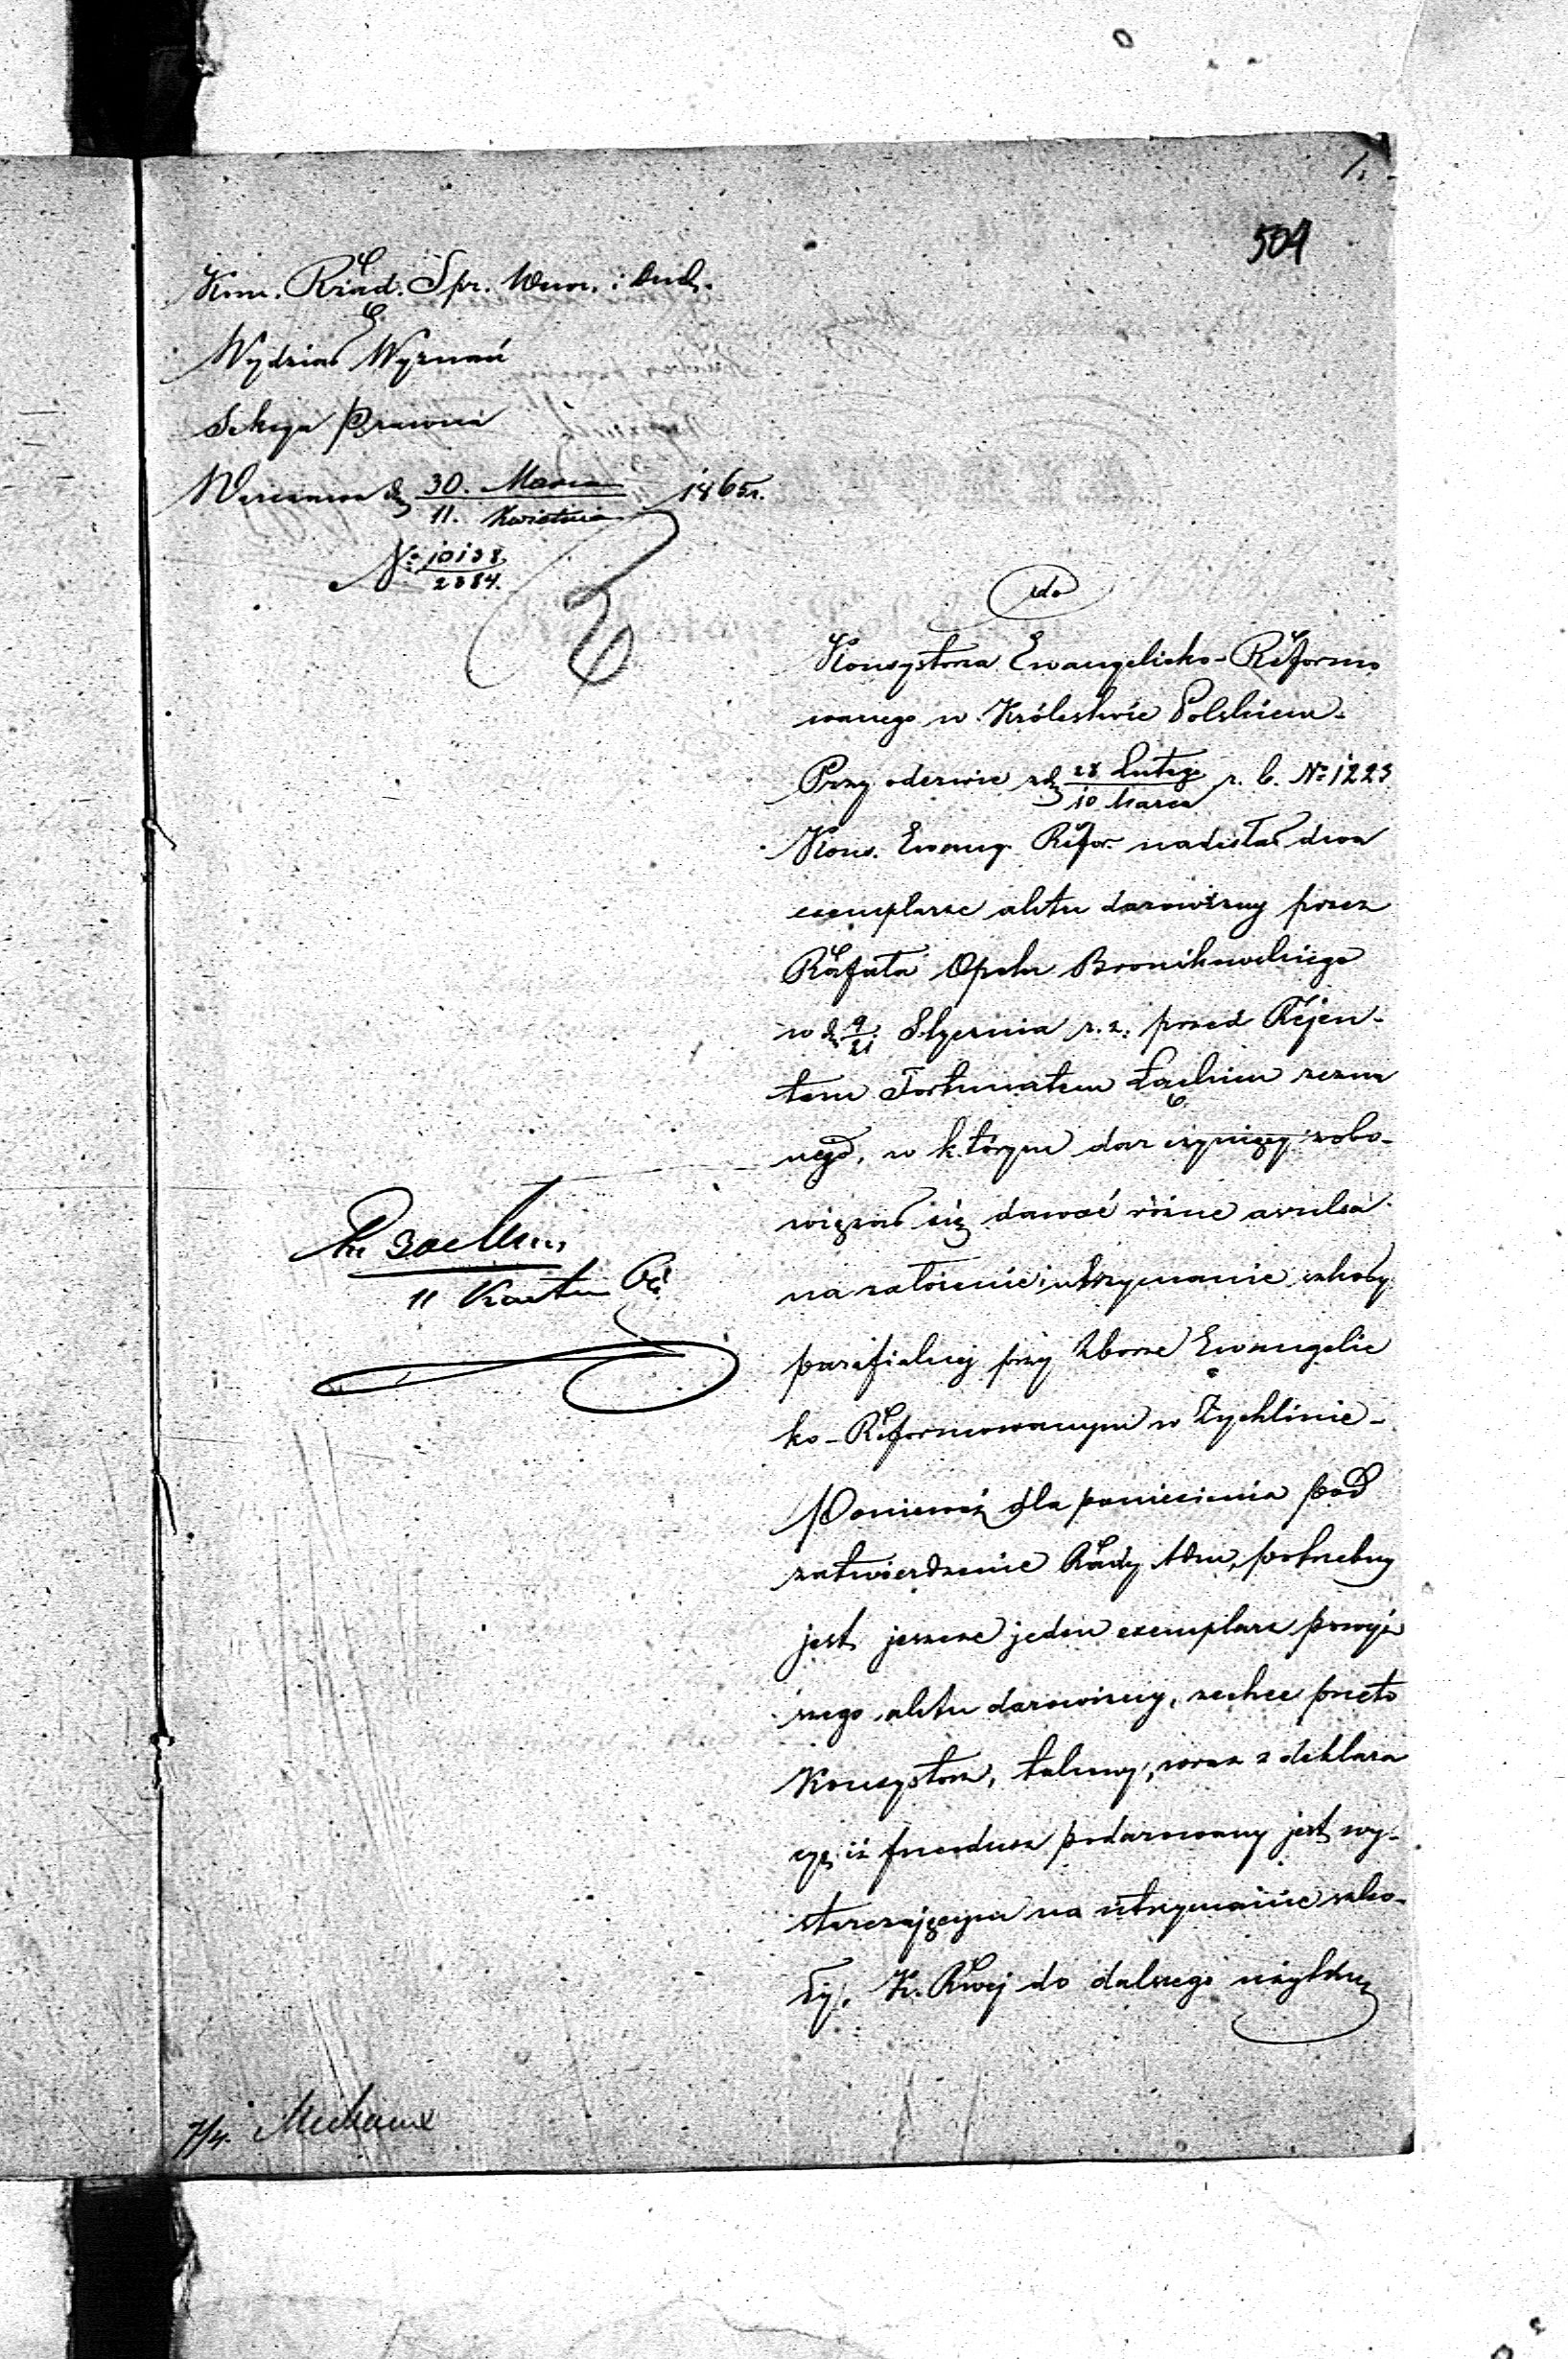 1.
504
Kom. Rząd. Spr. Wewn. i Duch.
Wydział Wyznań
Sekcya Prawna
Warszawa d. 30. Marca / 11. Kwietnia 1865 r.
No 10138 / 2384.
do
Konsystorza Ewangelicko-Reformo
wanego w Królestwie Polskiem.
Przy odezwie z d. 28 Lutego / 10 Marca r. b. No 1223
Kons. Ewang. Refor. nadesłał dwa
exemplarze aktu darowizny przez
Rafała Opeln Bronikowskiego
w d. 9/21 Stycznia r. z. przed Rejen-
tem Fortunatem Łąckim zezna
nego, w którym dar czyniący zobo-
wiązał się dawać różne
na założenie i utrzymanie szkoły
parafialnej przy Zborze Ewangelic
ko-Reformowanym w Żychlinie-
Ponieważ dla poniesienia pod
zatwierdzenie Rady Adm. potrzebny
jest jeszcze jeden exemplarz powyż
szego aktu darowizny, zechce przeto
Konsystorz, takowy, wraz z deklara
cyą iż fundusz podarowany jest wy-
starczającym na utrzymanie szko-
ły, K. Rwej do dalszego użytku
11
7/4.